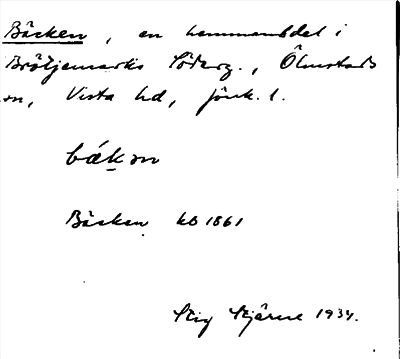 Bäcken, en hemmansdel i
Brötjemarks Söderg., Ölmstads
sn, Vista hd, Jönk. l.
bǽkm
Bäcken kb 1861
Stig Stjärne 1934.